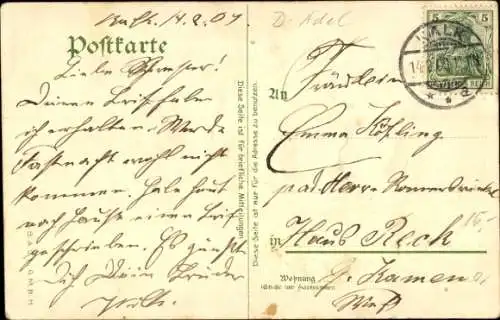 Kalk, 14.2.07
D. Adel
Postkarte
5 5
KALK
14.2.
a
REICH
Liebe Schwester!
Deinen Brief habe
ich erhalten. Werde
Fastnacht wohl nicht
kommen. Habe heut
nach Hause einen Brief
geschrieben. Es grüßt
Dich Dein Bruder
Diese Seite ist für briefliche Mitteilungen
Diese Seite ist nur für die Adresse zu benutzen.
An Fräulein
Emma
Herrn
in Haus Reck
16.
Wohnung
(Straße und Hausnummer)
b. Kamen
Westf.